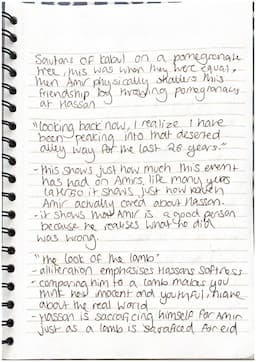 Sultans of Kabul on a pomegranate
tree, this was when they were equal,
then Amir physically shatters this
friendship by throwing pomegranates
at Hassan
"looking back now, I realize I have
been peaking into that deserted
alley way for the last 26 years."
- this shows just how much this event
has had on Amirs life many years
later so it shows just how
Amir actually cared about Hassan.
- it shows that Amir is a good person
because he realises what he did
was wrong.
"the look of the lamb"
- alliteration emphasises Hassans softness
- comparing him to a lamb makes you
think how inocent and youthful, niave
about the real world
- Hassan is sacraficing himself for Amir
just as a lamb is sacraficed for eid